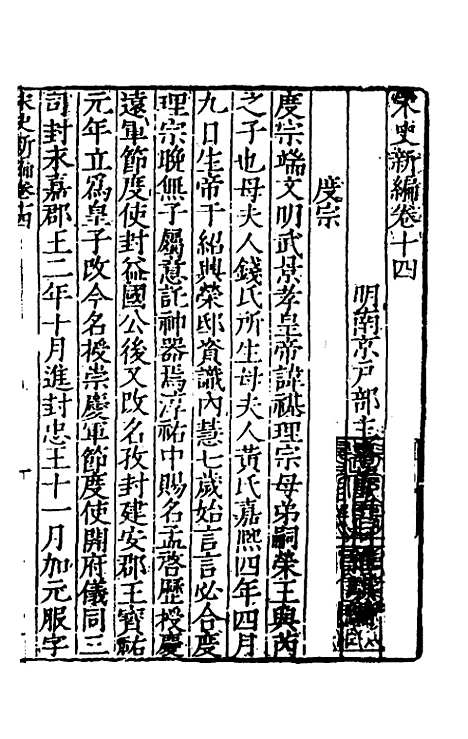 宋史新編卷十四
明南京戶部主
度宗
度宗端文明武景孝皇帝諱禥理宗母弟嗣榮王與芮
之子也母夫人錢氏所生母夫人黃氏嘉熙四年四月
九日生帝于紹興榮邸資識內慧七歲始言言必合度
理宗晚無子屬意託神器焉淳祐中賜名孟啓歷授慶
遠軍節度使封益國公後又改名孜封建安郡王寶祐
元年立爲皇子改今名授崇慶軍節度使開府儀同三
司封永嘉郡王二年十月進封忠王十一月加元服字
宋史新編卷十四